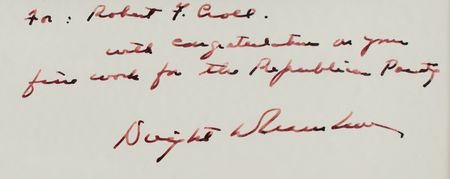 For: Robert F. Croll.
with congratulations on your
fine work for the Republican Party
Dwight D Eisenhower